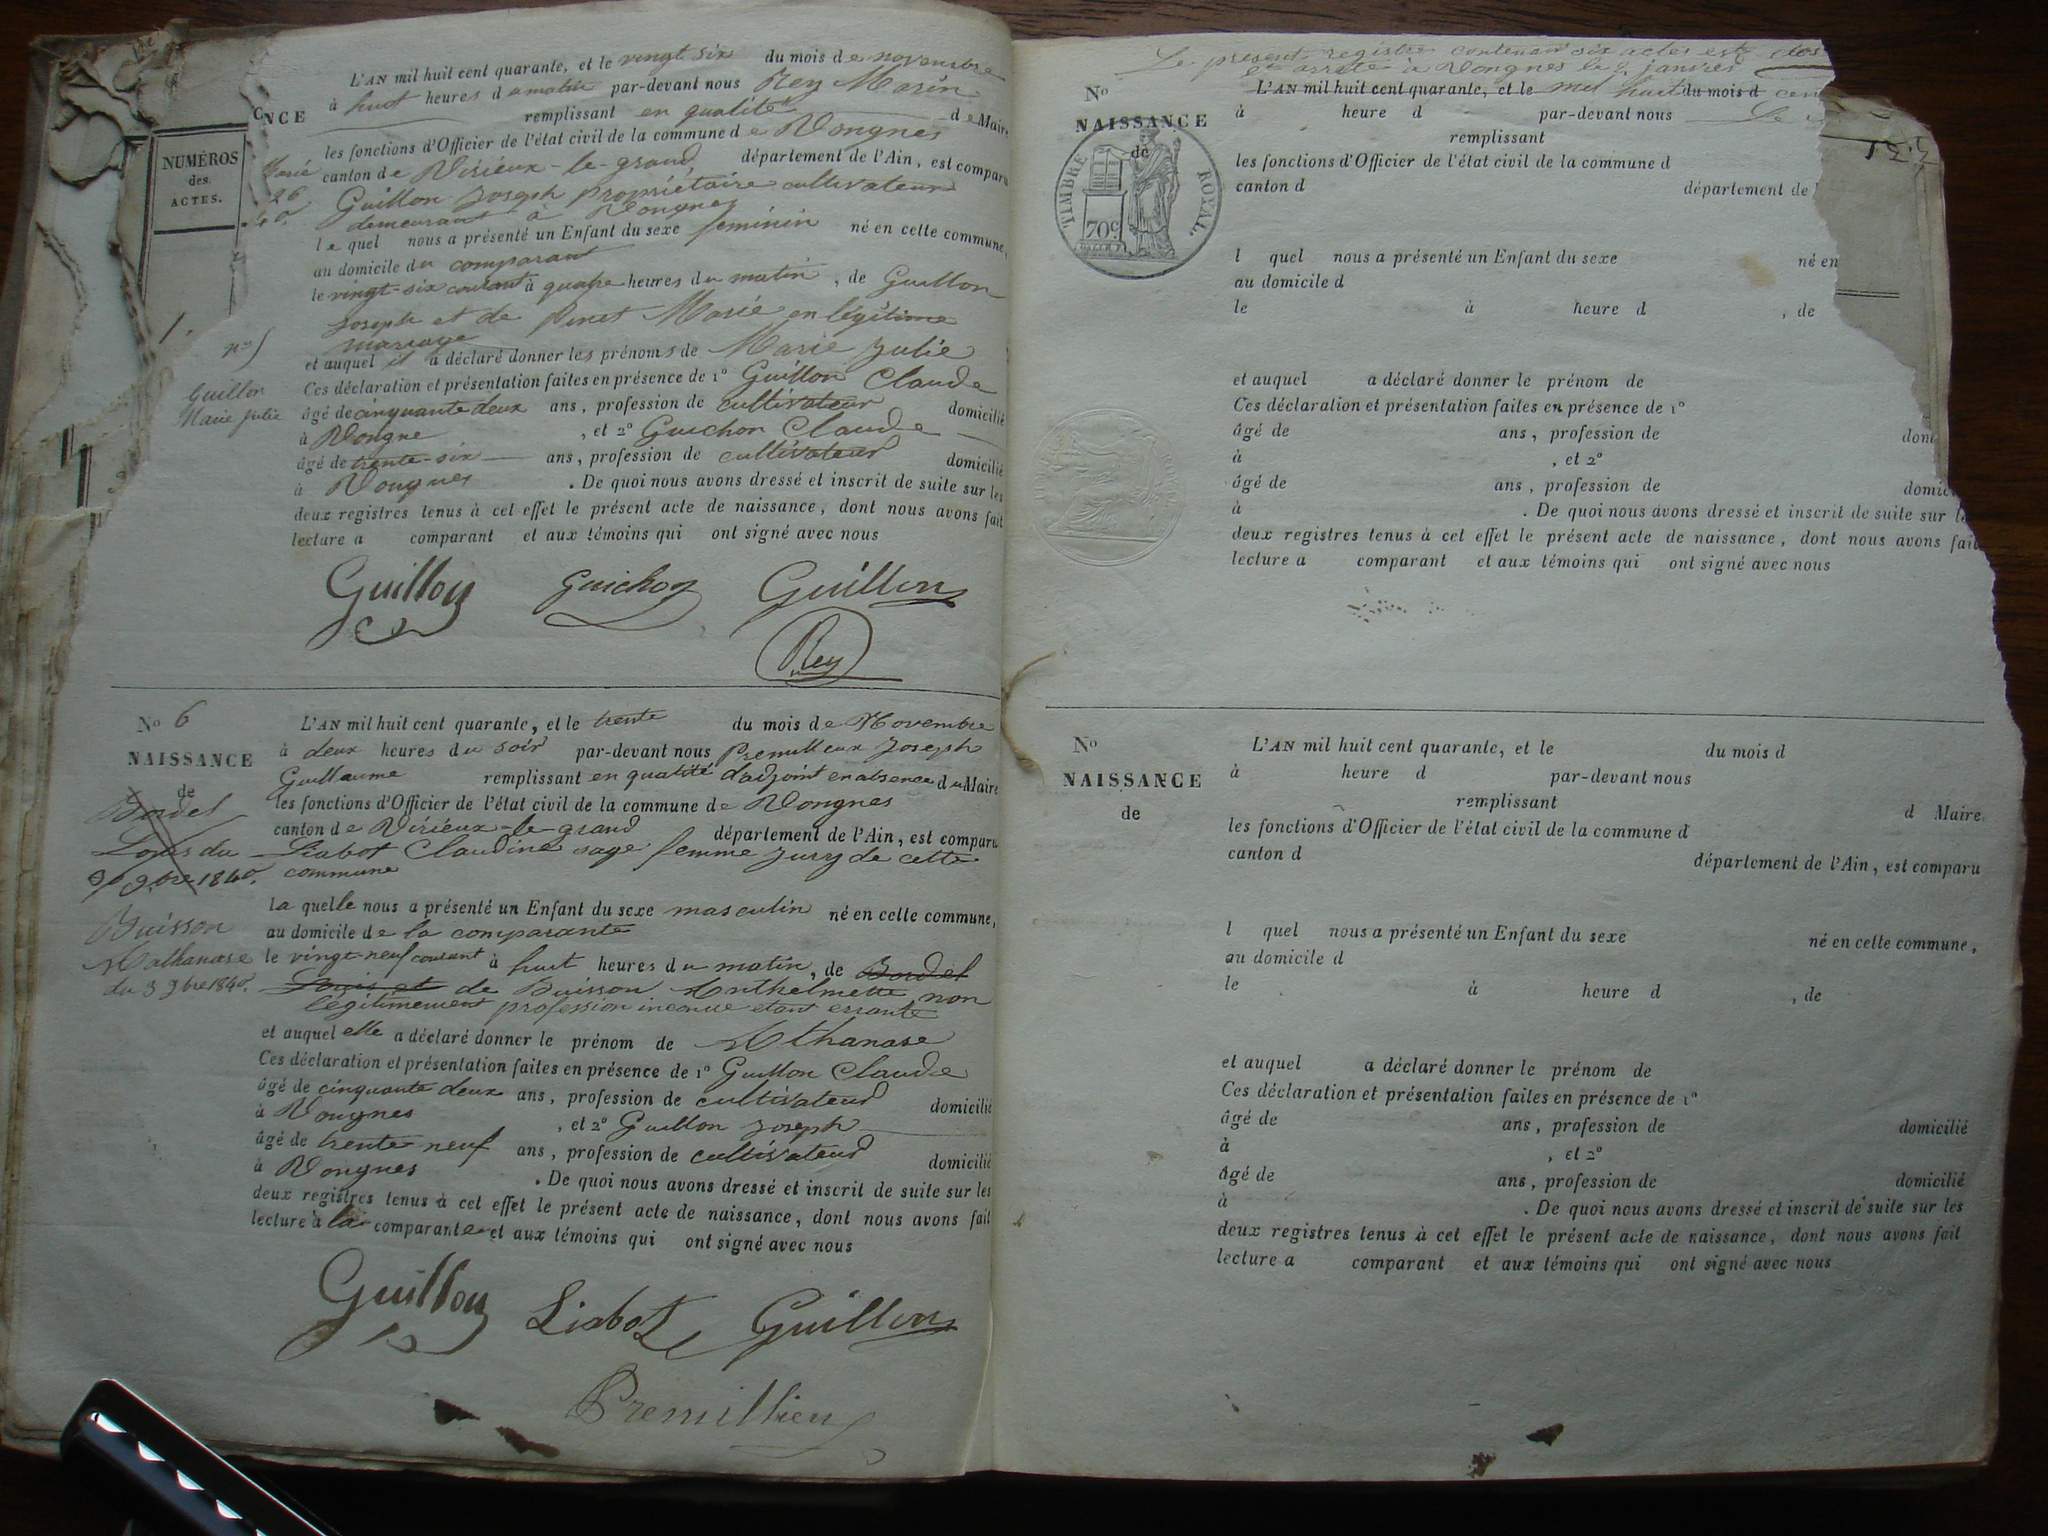 NUMÉROS
des
ACTES.
NCE
L'AN mil huit cent quarante, et le vingt six du mois de novembre
à huit heures d matin par-devant nous Rey Marin
remplissant en qualité de Maire
les fonctions d'Officier de l'état civil de la commune de Vongnes
canton de Virieux-le-grand département de l'Ain, est comparu
Guillon Joseph propriétaire cultivateur
demeurant à Vongnes
le quel nous a présenté un Enfant du sexe feminin né en cette commune,
au domicile du comparant
le vingt-six courant à quatre heures du matin, de Guillon
Joseph et de Pinet Marie en légitime
mariage
et auquel il a déclaré donner les prénoms de Marie Julie
Guillon
Marie Julie
Ces déclaration et présentation faites en présence de 1º Guillon Claude
âgé de cinquante deux ans, profession de cultivateur domicilié
à Vongne, et 2º Guichon Claude
âgé de trente-six ans, profession de cultivateur domicilié
à Vongnes. De quoi nous avons dressé et inscrit de suite sur les
deux registres tenus à cet effet le présent acte de naissance, dont nous avons fait
lecture a comparant et aux témoins qui ont signé avec nous
Guillon Guichon Guillon
Rey
Nº 6
NAISSANCE
de
Bordel
Louis du
9bre 1840.
Buisson
Athanase
du 3 9bre 1840.
L'AN mil huit cent quarante, et le trente du mois de Novembre
à deux heures du soir par-devant nous Premillieux Joseph
Guillaume remplissant en qualité d'adjoint en absence du Maire
les fonctions d'Officier de l'état civil de la commune de Vongnes
canton de Virieux-le-grand département de l'Ain, est comparu
Liabot Claudine sage femme jury de cette
commune
la quelle nous a présenté un Enfant du sexe masculin né en cette commune,
au domicile de la comparante
le vingt-neuf courant à huit heures du matin, de Bordel
Louis et de Buisson Anthelmette non
légitimement profession inconue etant errante
et auquel elle a déclaré donner le prénom de Athanase
Ces déclaration et présentation faites en présence de 1º Guillon Claude
âgé de cinquante deux ans, profession de cultivateur domicilié
à Vongnes, et 2º Guillon Joseph
âgé de trente neuf ans, profession de cultivateur domicilié
à Vongnes. De quoi nous avons dressé et inscrit de suite sur les
deux registres tenus à cet effet le présent acte de naissance, dont nous avons fait
lecture à la comparante et aux témoins qui ont signé avec nous
Guillon Liabot Guillon
Premillieu
Le present registre contenant six actes est clos
et arrêté à Vongnes le 2 janvier
Nº
NAISSANCE
de
TIMBRE ROYAL.
70c
L'AN mil huit cent quarante, et le mil huit du mois d cent
à heure d par-devant nous Le
remplissant
les fonctions d'Officier de l'état civil de la commune d
canton d département de l
l quel nous a présenté un Enfant du sexe né en
au domicile d
le à heure d , de
et auquel a déclaré donner le prénom de
Ces déclaration et présentation faites en présence de 1º
âgé de ans, profession de dom
à , et 2º
âgé de ans, profession de domic
à . De quoi nous avons dressé et inscrit de suite sur le
deux registres tenus à cet effet le présent acte de naissance, dont nous avons fait
lecture a comparant et aux témoins qui ont signé avec nous
Nº
NAISSANCE
de
L'AN mil huit cent quarante, et le du mois d
à heure d par-devant nous
remplissant d Maire
les fonctions d'Officier de l'état civil de la commune d
canton d département de l'Ain, est comparu
l quel nous a présenté un Enfant du sexe né en cette commune,
au domicile d
le à heure d , de
et auquel a déclaré donner le prénom de
Ces déclaration et présentation faites en présence de 1º
âgé de ans, profession de domicilié
à , et 2º
âgé de ans, profession de domicilié
à . De quoi nous avons dressé et inscrit de suite sur les
deux registres tenus à cet effet le présent acte de naissance, dont nous avons fait
lecture a comparant et aux témoins qui ont signé avec nous